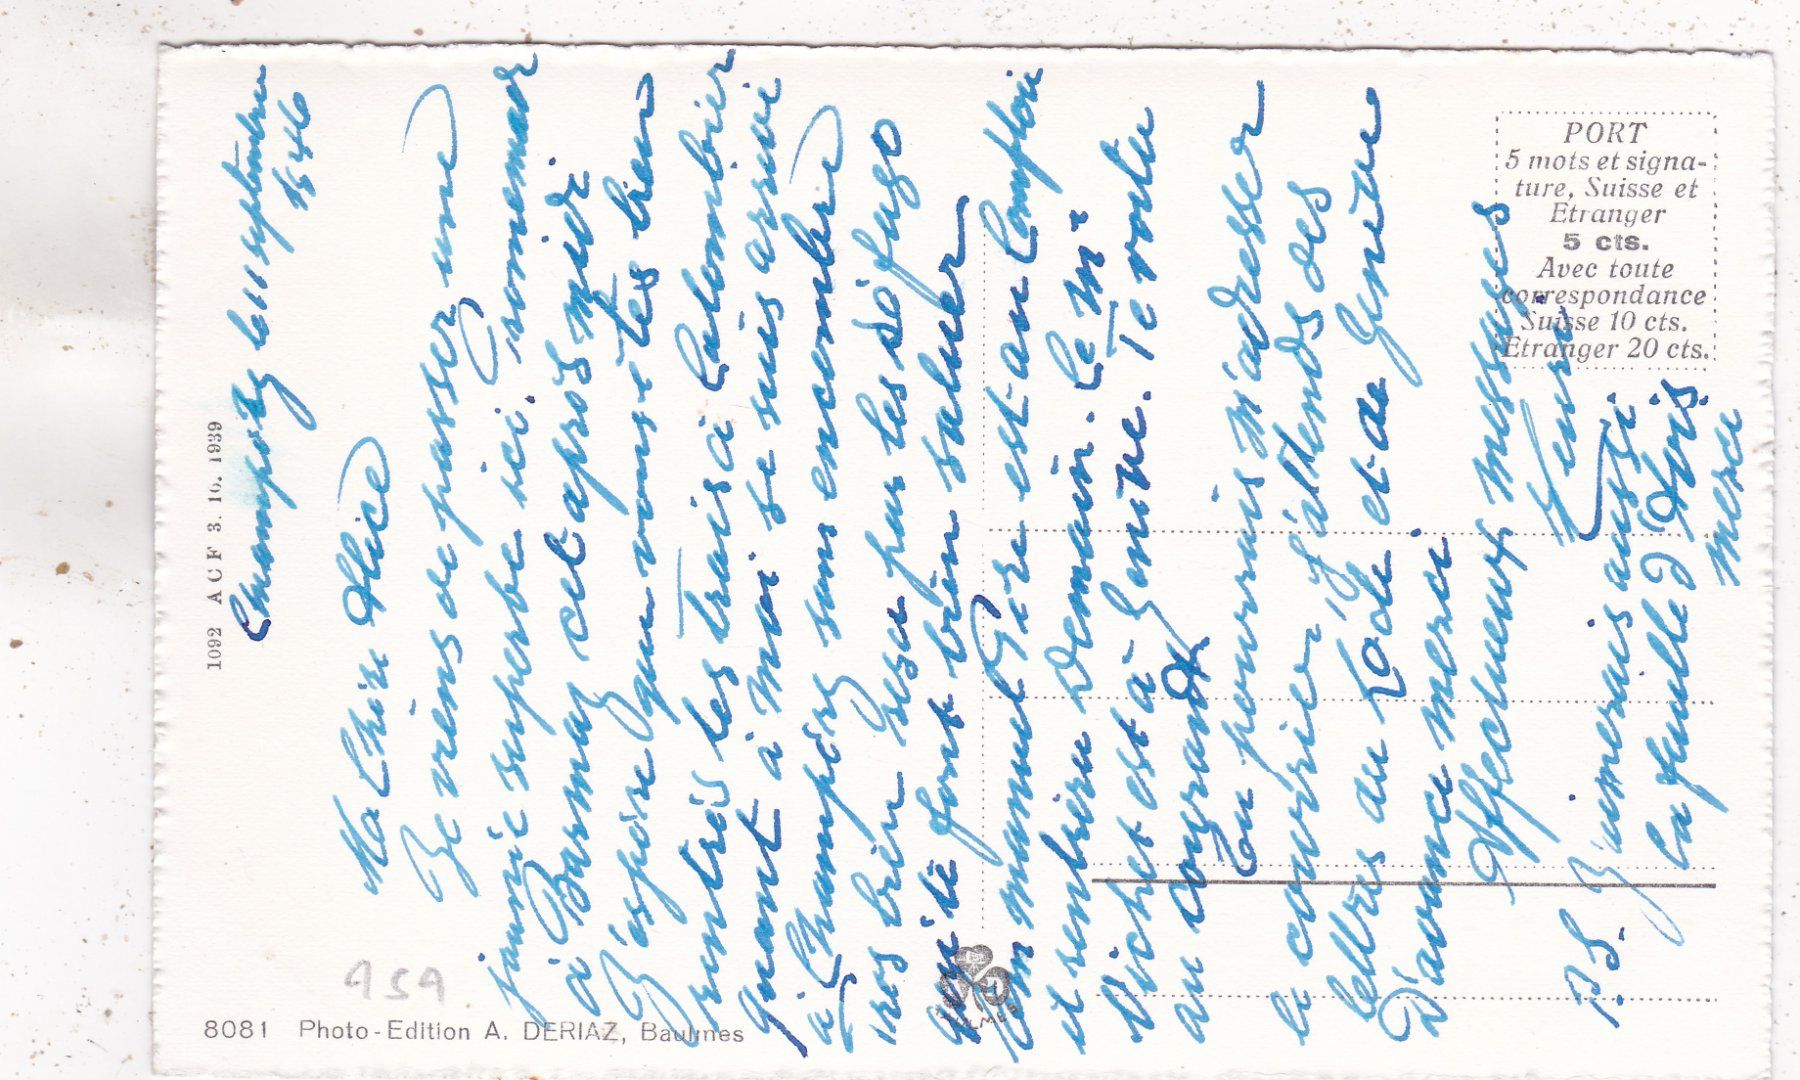 Champéry le 11 septembre
1946
Ma Chère Alice
Je viens de passer une
journée superbe ici, promenade
à Barmaz cet après midi
J'espère que vous êtes bien
rentrés les trois à Colombier
Quant à moi je suis arrivé
à Champéry sans encombre
très bien reçu par les
font bien saluer
est au Comptoir
et rentrera demain. Le
Michel est à Genève. Te voilà
au courant
Tu pourrais m'adresser
le courrier, j'attends des
lettres du Locle et de Genève
D'avance merci
Affectueux messages
P.S. J'aimerais aussi
la feuille d'Avis.
merci
1092 A C F 3. 10. 1939
PORT
5 mots et signa-
ture, Suisse et
Etranger
5 cts.
Avec toute
correspondance
Suisse 10 cts.
Etranger 20 cts.
8081 Photo-Edition A. DERIAZ, Baulmes